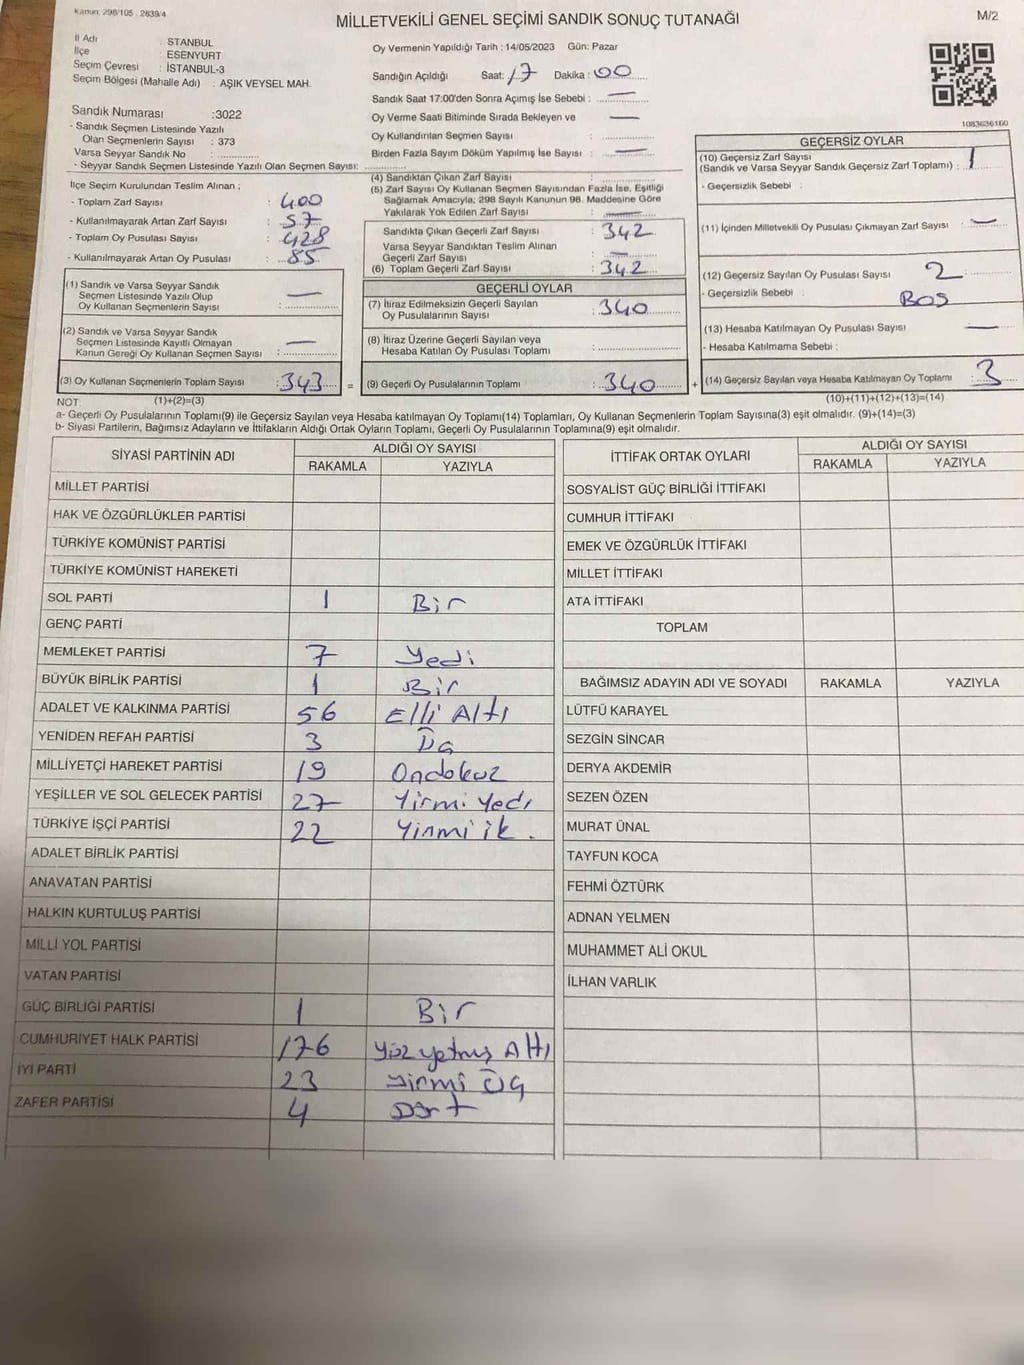 Kanun: 298/105 , 2839/4
MİLLETVEKİLİ GENEL SEÇİMİ SANDIK SONUÇ TUTANAĞI
M/2
İl Adı : İSTANBUL
İlçe : ESENYURT
Seçim Çevresi : İSTANBUL-3
Seçim Bölgesi (Mahalle Adı) : AŞIK VEYSEL MAH.
Sandık Numarası :3022
- Sandık Seçmen Listesinde Yazılı
Olan Seçmenlerin Sayısı : 373
Varsa Seyyar Sandık No :
- Seyyar Sandık Seçmen Listesinde Yazılı Olan Seçmen Sayısı:
İlçe Seçim Kurulundan Teslim Alınan ;
- Toplam Zarf Sayısı : 400
- Kullanılmayarak Artan Zarf Sayısı : 57
- Toplam Oy Pusulası Sayısı : 428
- Kullanılmayarak Artan Oy Pusulası : 85
(1) Sandık ve Varsa Seyyar Sandık
Seçmen Listesinde Yazılı Olup
Oy Kullanan Seçmenlerin Sayısı : —
(2) Sandık ve Varsa Seyyar Sandık
Seçmen Listesinde Kayıtlı Olmayan
Kanun Gereği Oy Kullanan Seçmen Sayısı : —
(3) Oy Kullanan Seçmenlerin Toplam Sayısı : 343 =
Oy Vermenin Yapıldığı Tarih : 14/05/2023 Gün: Pazar
Sandığın Açıldığı Saat: 17 Dakika : 00
Sandık Saat 17:00'den Sonra Açımış İse Sebebi : —
Oy Verme Saati Bitiminde Sırada Bekleyen ve —
Oy Kullandırılan Seçmen Sayısı :
Birden Fazla Sayım Döküm Yapılmış İse Sayısı : —
(4) Sandıktan Çıkan Zarf Sayısı :
(5) Zarf Sayısı Oy Kullanan Seçmen Sayısından Fazla İse, Eşitliği
Sağlamak Amacıyla; 298 Sayılı Kanunun 98. Maddesine Göre
Yakılarak Yok Edilen Zarf Sayısı : —
Sandıkta Çıkan Geçerli Zarf Sayısı : 342
Varsa Seyyar Sandıktan Teslim Alınan
Geçerli Zarf Sayısı : —
(6) Toplam Geçerli Zarf Sayısı : 342
GEÇERLİ OYLAR
(7) İtiraz Edilmeksizin Geçerli Sayılan
Oy Pusulalarının Sayısı : 340
(8) İtiraz Üzerine Geçerli Sayılan veya
Hesaba Katılan Oy Pusulası Toplamı :
(9) Geçerli Oy Pusulalarının Toplamı : 340 +
1083636160
GEÇERSİZ OYLAR
(10) Geçersiz Zarf Sayısı
(Sandık ve Varsa Seyyar Sandık Geçersiz Zarf Toplamı) : 1
- Geçersizlik Sebebi :
(11) İçinden Milletvekili Oy Pusulası Çıkmayan Zarf Sayısı : —
(12) Geçersiz Sayılan Oy Pusulası Sayısı : 2
- Geçersizlik Sebebi : BOŞ
(13) Hesaba Katılmayan Oy Pusulası Sayısı : —
- Hesaba Katılmama Sebebi :
(14) Geçersiz Sayılan veya Hesaba Katılmayan Oy Toplamı : 3
NOT (1)+(2)=(3) (10)+(11)+(12)+(13)=(14)
a- Geçerli Oy Pusulalarının Toplamı(9) ile Geçersiz Sayılan veya Hesaba katılmayan Oy Toplamı(14) Toplamları, Oy Kullanan Seçmenlerin Toplam Sayısına(3) eşit olmalıdır. (9)+(14)=(3)
b- Siyasi Partilerin, Bağımsız Adayların ve İttifakların Aldığı Ortak Oyların Toplamı, Geçerli Oy Pusulalarının Toplamına(9) eşit olmalıdır.
SİYASİ PARTİNİN ADI ALDIĞI OY SAYISI
RAKAMLA YAZIYLA
MİLLET PARTİSİ
HAK VE ÖZGÜRLÜKLER PARTİSİ
TÜRKİYE KOMÜNİST PARTİSİ
TÜRKİYE KOMÜNİST HAREKETİ
SOL PARTİ 1 Bir
GENÇ PARTİ
MEMLEKET PARTİSİ 7 Yedi
BÜYÜK BİRLİK PARTİSİ 1 Bir
ADALET VE KALKINMA PARTİSİ 56 Elli Altı
YENİDEN REFAH PARTİSİ 3 Üç
MİLLİYETÇİ HAREKET PARTİSİ 19 Ondokuz
YEŞİLLER VE SOL GELECEK PARTİSİ 27 Yirmi Yedi
TÜRKİYE İŞÇİ PARTİSİ 22 Yirmi ik.
ADALET BİRLİK PARTİSİ
ANAVATAN PARTİSİ
HALKIN KURTULUŞ PARTİSİ
MİLLİ YOL PARTİSİ
VATAN PARTİSİ
GÜÇ BİRLİĞİ PARTİSİ 1 Bir
CUMHURİYET HALK PARTİSİ 176 Yüz yetmiş Altı
İYİ PARTİ 23 Yirmi Üç
ZAFER PARTİSİ 4 Dört
İTTİFAK ORTAK OYLARI ALDIĞI OY SAYISI
RAKAMLA YAZIYLA
SOSYALİST GÜÇ BİRLİĞİ İTTİFAKI
CUMHUR İTTİFAKI
EMEK VE ÖZGÜRLÜK İTTİFAKI
MİLLET İTTİFAKI
ATA İTTİFAKI
TOPLAM
BAĞIMSIZ ADAYIN ADI VE SOYADI RAKAMLA YAZIYLA
LÜTFÜ KARAYEL
SEZGİN SİNCAR
DERYA AKDEMİR
SEZEN ÖZEN
MURAT ÜNAL
TAYFUN KOCA
FEHMİ ÖZTÜRK
ADNAN YELMEN
MUHAMMET ALİ OKUL
İLHAN VARLIK